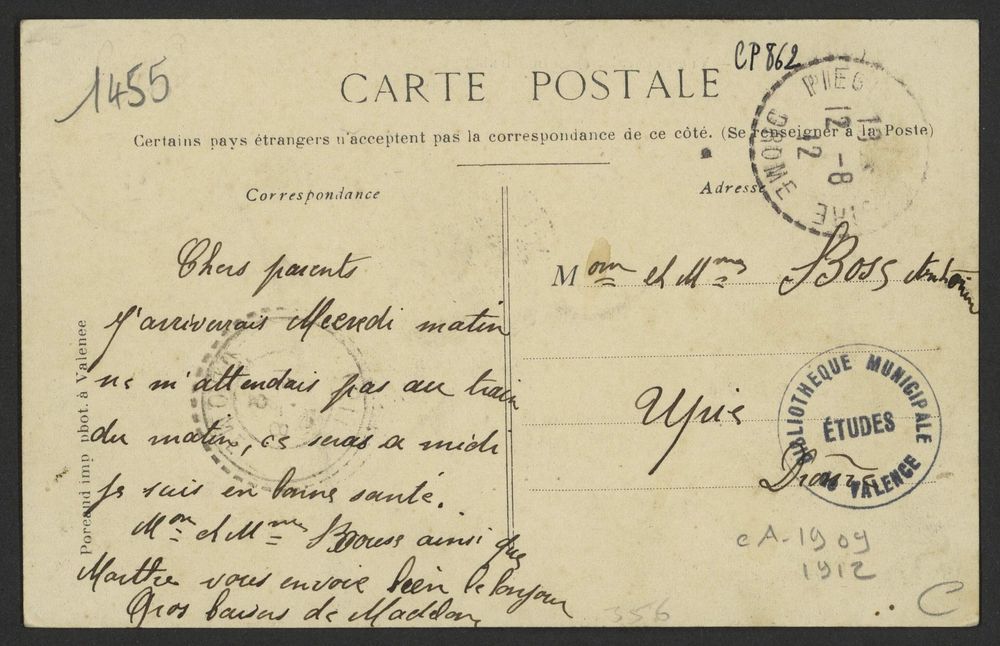 1455
CP862
CARTE POSTALE
Certains pays étrangers n'acceptent pas la correspondance de ce côté. (Se renseigner à la Poste)
Correspondance
Adresse
12 -8
12
DROME
Chers parents
J'arriverais Mecredi matin
ne m'attendais pas au train
du matin, ce seras a midi
Je suis en bonne santé.
Mon et Mmes ainsi que
Marthe vous envoie bien le bonjour
Gros baisers de
M on et Mmes Boss Antonin
Upie
Drome
BIBLIOTHÈQUE MUNICIPALE
ÉTUDES
de VALENCE
CA-1909
1912
356
C
Poreand imp phot. à Valence